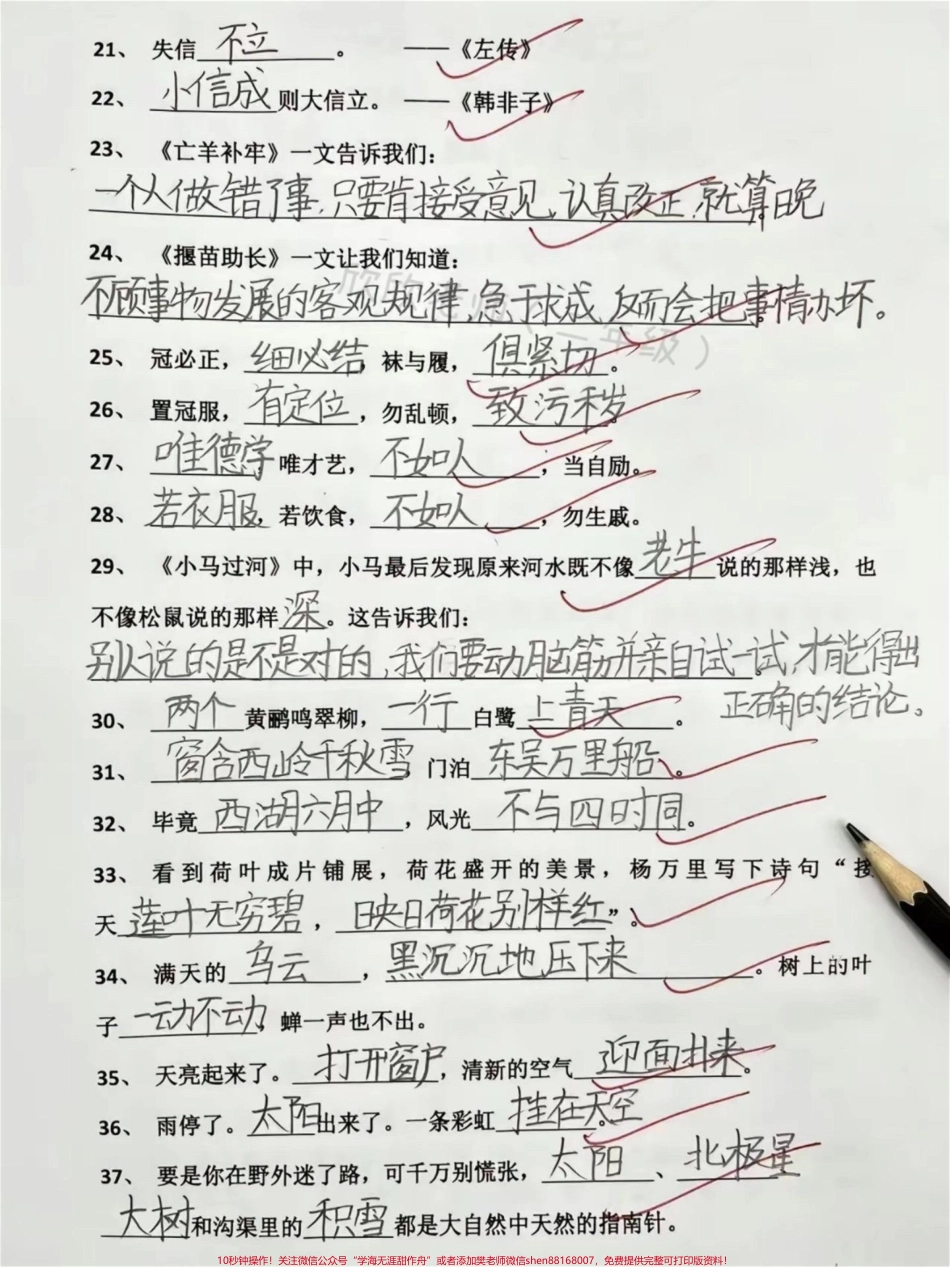 21、 失信不立。 ——《左传》
22、 小信成则大信立。 ——《韩非子》
23、 《亡羊补牢》一文告诉我们：
一个人做错了事，只要肯接受意见，认真改正，就算晚
24、 《揠苗助长》一文让我们知道：
不顾事物发展的客观规律，急于求成，反而会把事情办坏。
25、 冠必正，细必结，袜与履，俱紧切。
26、 置冠服，有定位，勿乱顿，致污秽。
27、 唯德学唯才艺，不如人，当自励。
28、 若衣服，若饮食，不如人，勿生戚。
29、 《小马过河》中，小马最后发现原来河水既不像老牛说的那样浅，也
不像松鼠说的那样深。这告诉我们：
别人说的是不是对的，我们要动脑筋并亲自试一试，才能得出
正确的结论。
30、 两个黄鹂鸣翠柳，一行白鹭上青天。
31、 窗含西岭千秋雪，门泊东吴万里船。
32、 毕竟西湖六月中，风光不与四时同。
33、看到荷叶成片铺展，荷花盛开的美景，杨万里写下诗句“接
天莲叶无穷碧，映日荷花别样红”。
34、 满天的乌云，黑沉沉地压下来。树上的叶
子一动不动，蝉一声也不出。
35、 天亮起来了。打开窗户，清新的空气迎面扑来。
36、 雨停了。太阳出来了。一条彩虹挂在天空。
37、 要是你在野外迷了路，可千万别慌张，太阳、北极星
大树和沟渠里的积雪都是大自然中天然的指南针。
10秒钟操作！关注微信公众号“学海无涯甜作舟”或者添加樊老师微信shen88168007，免费提供完整可打印版资料！